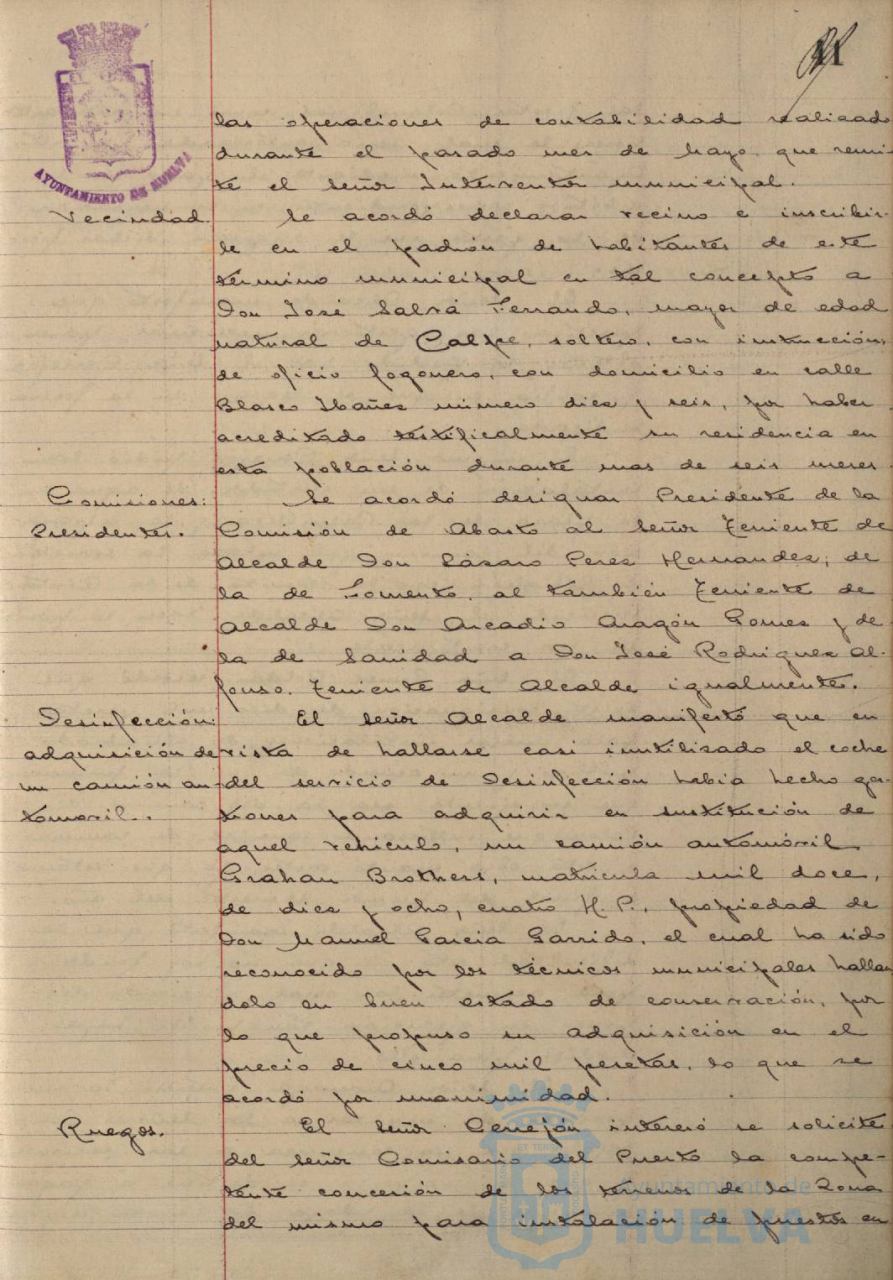 41
AYUNTAMIENTO DE HUELVA
las operaciones de contabilidad realizado
durante el pasado mes de Mayo que remi-
te el señor Interventor municipal.
Vecindad.
Se acordó declarar vecino e inscribir-
le en el padrón de habitantes de este
término municipal en tal concepto a
Don José Salvá Ferrando, mayor de edad
natural de Calpe, soltero, con instrucción,
de oficio fogonero, con domicilio en calle
Blasco Ibañez número diez y seis, por haber
acreditado testificalmente su residencia en
esta población durante mas de seis meses.
Comisiones:
Presidentes.
Se acordó designar Presidente de la
Comisión de Abasto al señor Teniente de
Alcalde Don Lázaro Perez Hernandez; de
la de Fomento, al también Teniente de
Alcalde Don Arcadio Aragón Gomez y de
la de Sanidad a Don José Rodriguez Al-
fonso, Teniente de Alcalde igualmente.
Desinfección:
adquisición de
un camión au-
tomovil.
El señor Alcalde manifestó que en
vista de hallarse casi inutilizado el coche
del servicio de Desinfección habia hecho ges-
tiones para adquirir en sustitución de
aquel vehiculo, un camión automóvil
Grahan Brothers, matricula mil doce,
de diez y ocho, cuatro H. P., propiedad de
Don Manuel Garcia Garrido, el cual ha sido
reconocido por los técnicos municipales hallan
dolo en buen estado de conservación, por
lo que propuso su adquisición en el
precio de cinco mil pesetas, lo que se
acordó por unanimidad.
Ruegos.
El señor Cerrejón interesó se solicite
del señor Comisario del Puerto la compe-
tente concesión de los terrenos de la Zona
del mismo para instalación de puestos en
Ayuntamiento de
HUELVA